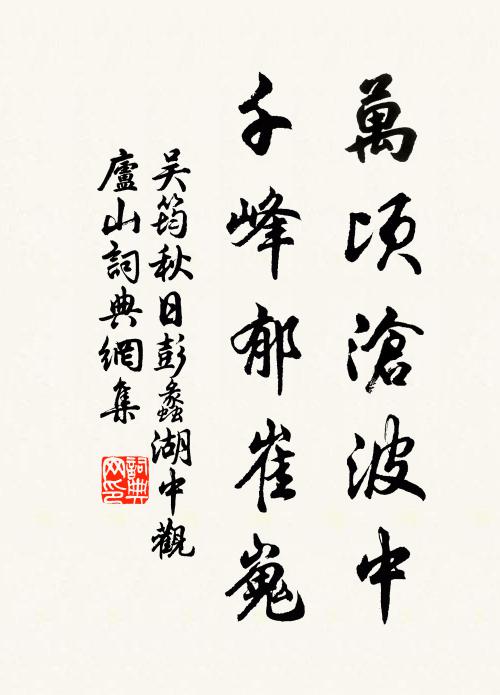 萬頃滄波中
千峰郁崔嵬
吴筠秋日彭蠡湖中觀
廬山詞典網集
詞典
网印